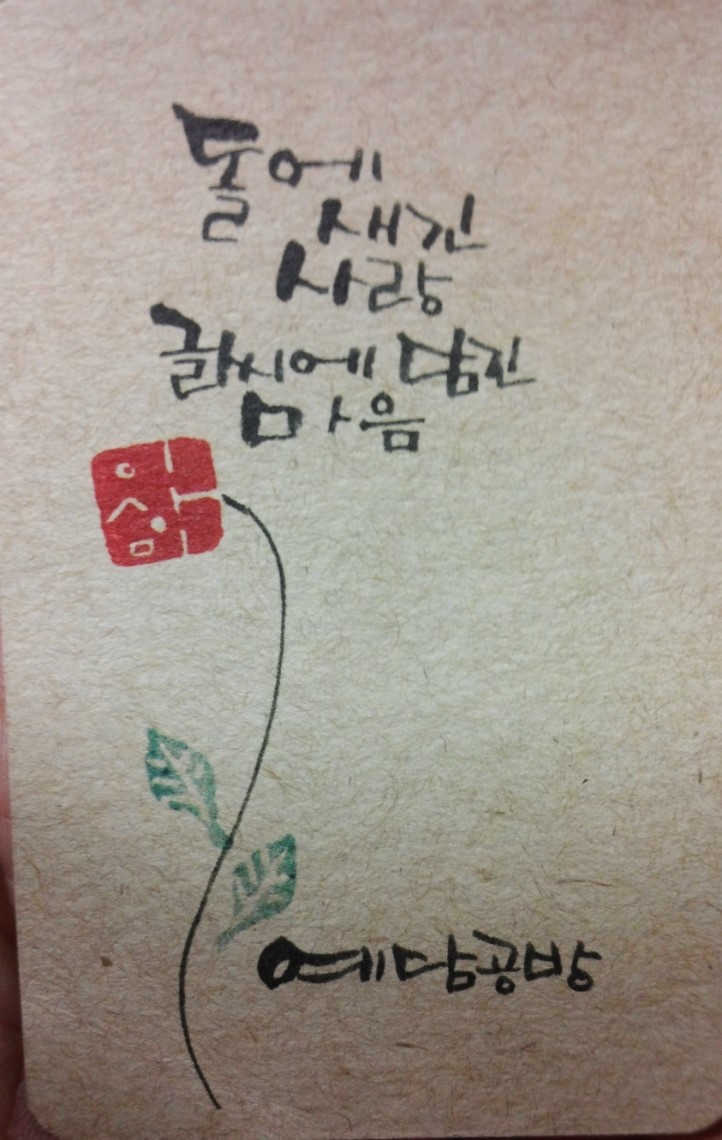 돌에
새긴
사랑
글씨에 담긴
마음
예담공방